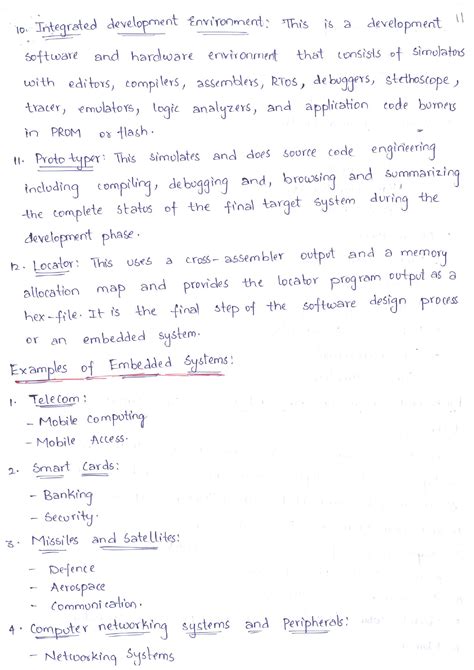 11
10. Integrated development Environment: This is a development
software and hardware environment that consists of simulators
with editors, compilers, assemblers, RTOS, debuggers, stethoscope,
tracer, emulators, logic analyzers, and application code burners
in PROM or flash.
11. Proto typer: This simulates and does source code engineering
including compiling, debugging and, browsing and summarizing
the complete status of the final target system during the
development phase.
12. Locator: This uses a cross-assembler output and a memory
allocation map and provides the locator program output as a
hex-file. It is the final step of the software design process
or an embedded system.
Examples of Embedded Systems:
1. Telecom:
- Mobile Computing
- Mobile Access.
2. Smart Cards:
- Banking
- Security.
3. Missiles and Satellites:
- Defence
- Aerospace
- Communication.
4. Computer networking systems and Peripherals:
- Networking Systems